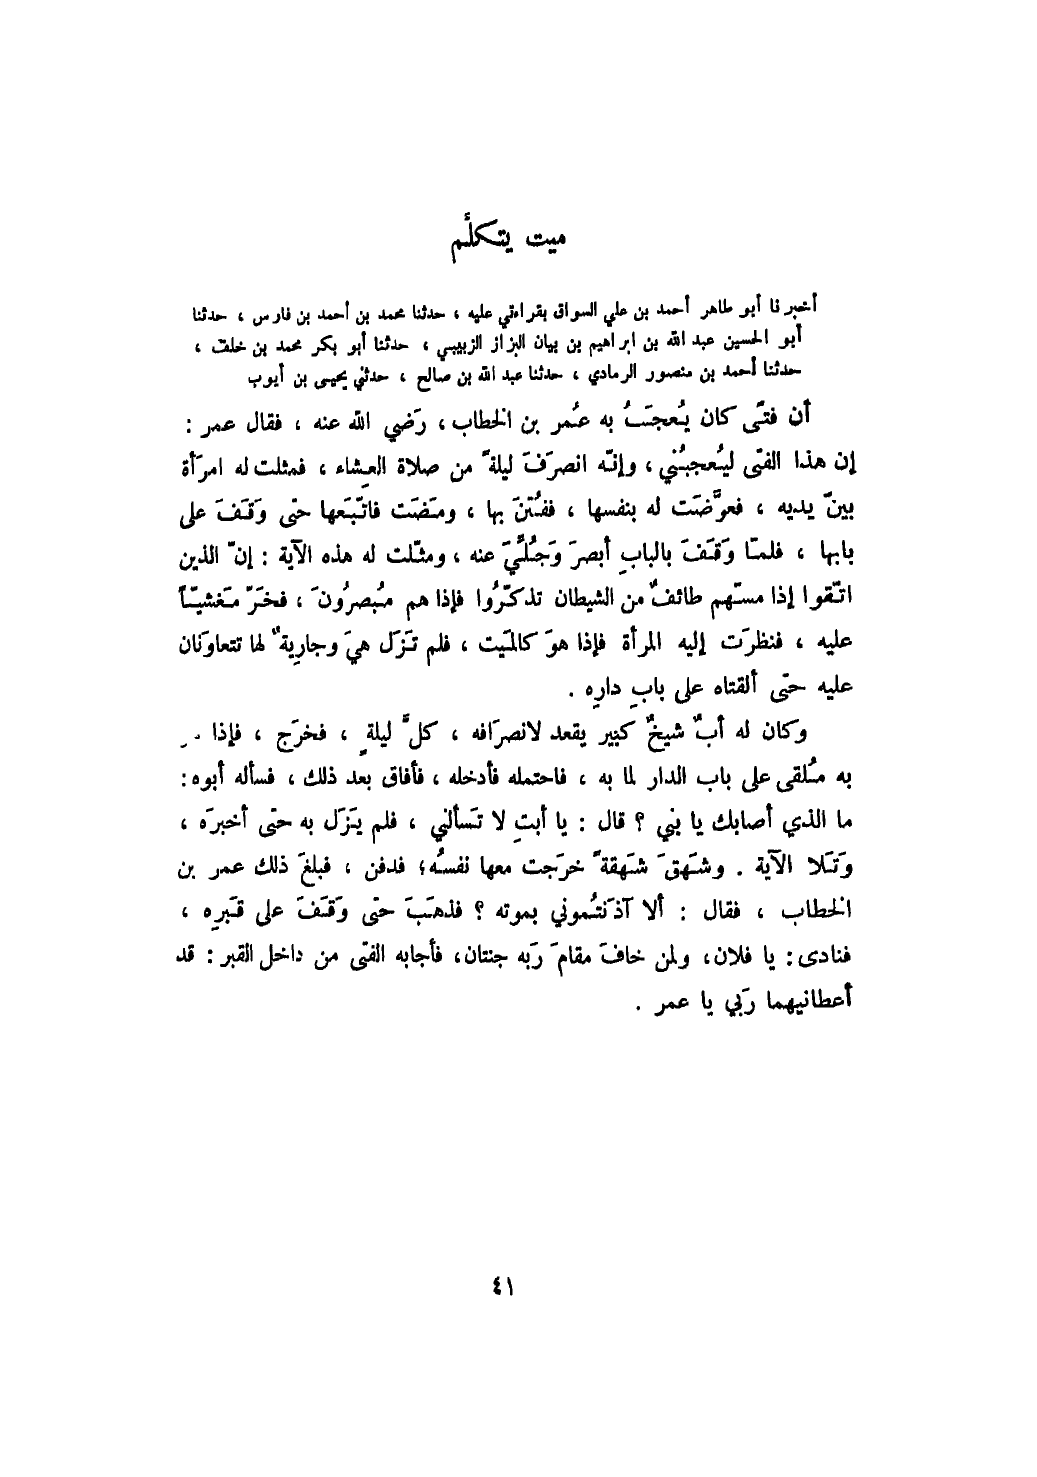 ميت يتكلّم
أخبرنا أبو طاهر أحمد بن علي السواق بقراءتي عليه ، حدثنا محمد بن أحمد بن فارس ، حدثنا
أبو الحسين عبد الله بن ابراهيم بن بيان البزاز الزبيبي ، حدثنا أبو بكر محمد بن خلف ،
حدثنا أحمد بن منصور الرمادي ، حدثنا عبد الله بن صالح ، حدثني يحيى بن أيوب
أن فتًى كان يُعجَبُ به عُمر بن الخطاب ، رَضي الله عنه ، فقال عمر :
إن هذا الفتى ليُعجبُني ، وإنّه انصرَفَ ليلةً من صلاة العِشاء ، فمثلت له امرَأة
بينَ يديه ، فعرَّضَت له بنفسها ، ففُتنَ بها ، ومَضَت فاتّبَعها حتى وَقَفَ على
بابها ، فلمّا وَقَفَ بالبابِ أبصرَ وَجُلّيَ عنه ، ومثّلت له هذه الآية : إنّ الذين
اتّقوا إذا مسّهم طائفٌ من الشيطان تذكّرُوا فإذا هم مُبصرُونَ ، فخَرّ مَغشيّاً
عليه ، فنظرَت إليه المرأة فإذا هوَ كالمَيت ، فلم تَزَل هيَ وجارِيةٌ لها تتعاوَنان
عليه حتّى ألقتاه على بابِ دارِه .
وكان له أبٌ شيخٌ كبير يقعد لانصرَافه ، كلَّ ليلةٍ ، فخرَج ، فإذا
به مُلقى على باب الدار لما به ، فاحتمله فأدخله ، فأفاق بعد ذلك ، فسأله أبوه :
ما الذي أصابك يا بني ؟ قال : يا أبتِ لا تَسألني ، فلم يَزَل به حتّى أخبرَه ،
وَتَلا الآية . وشَهقَ شَهقةً خرَجت معها نفسُه؛ فدفن ، فبلغَ ذلك عمر بن
الخطاب ، فقال : ألا آذَنتُموني بموته ؟ فذهَبَ حتى وَقَفَ على قَبرِه ،
فنادى : يا فلان، ولمن خافَ مقامَ رَبه جنتان، فأجابه الفتى من داخل القبر : قد
أعطانيهما رَبي يا عمر .
٤١